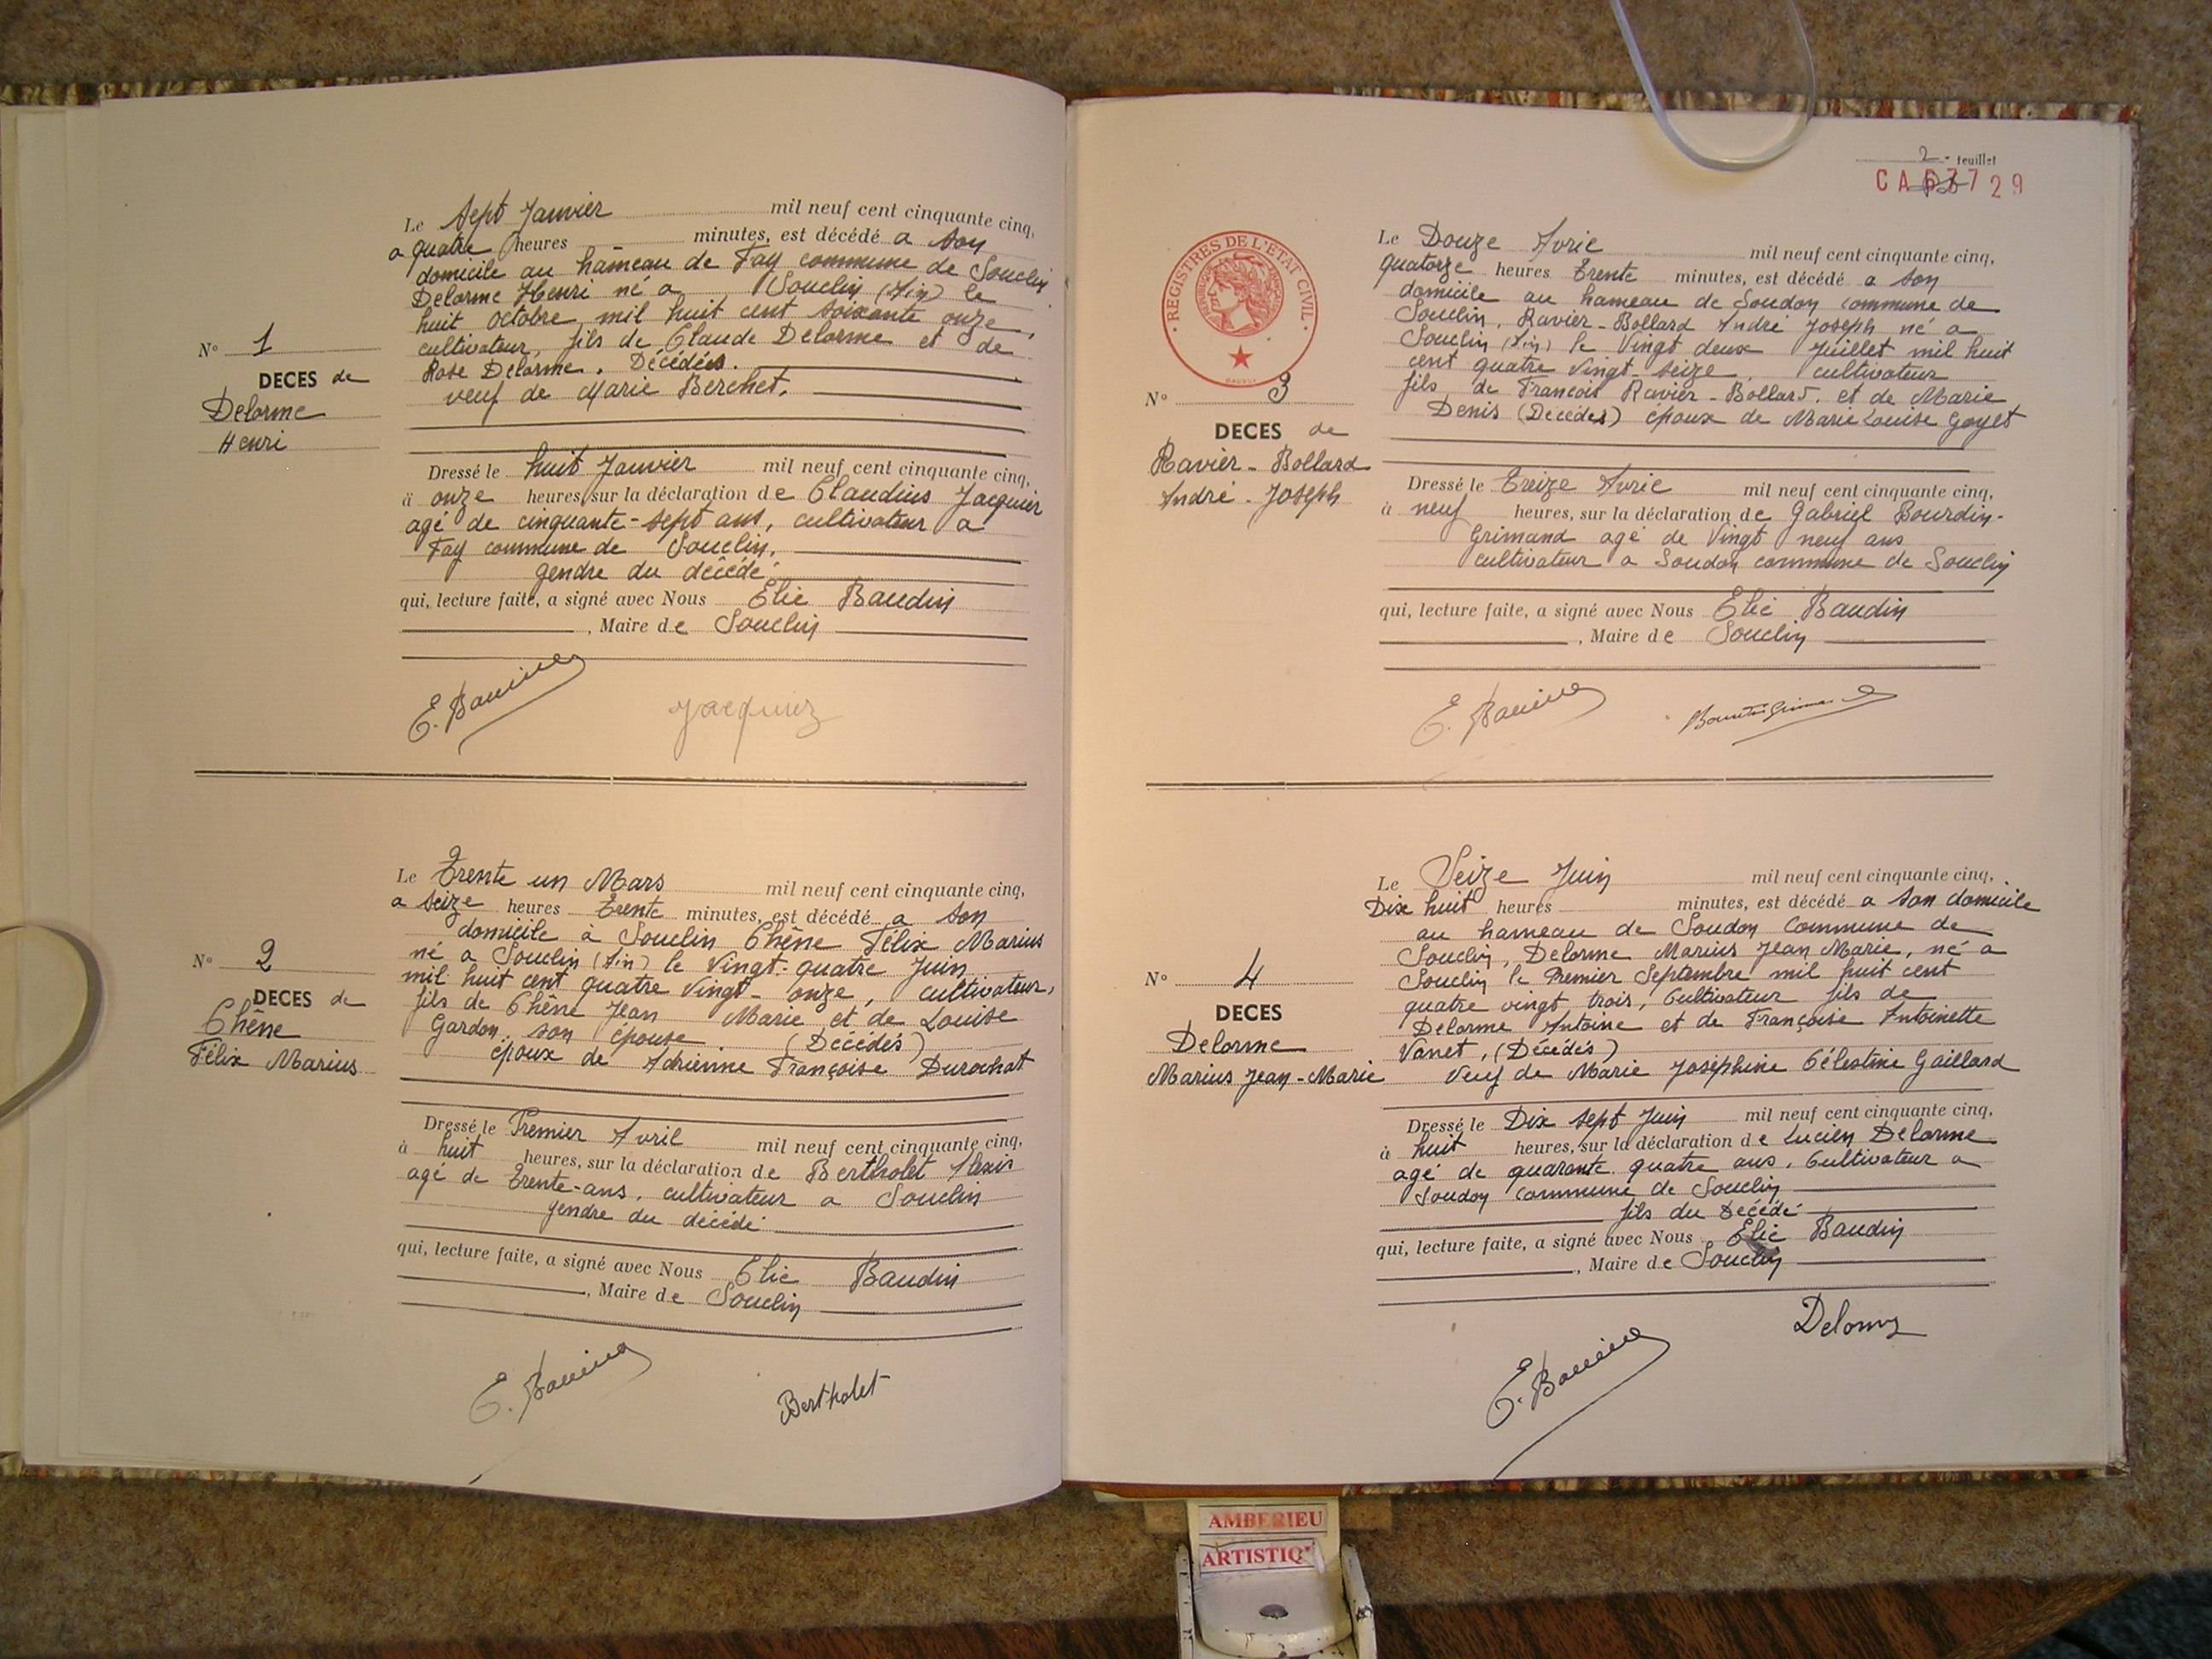 Le Sept Janvier mil neuf cent cinquante cinq,
a quatre heures — minutes, est décédé a son
domicile au hameau de Fay commune de Souclin
Delorme Henri né a Souclin (Ain) le
huit octobre mil huit cent soixante onze,
cultivateur, fils de Claude Delorme et de
Rose Delorme. Décédés.
veuf de Marie Berchet.
N° 1
DECES de
Delorme
Henri
Dressé le huit Janvier mil neuf cent cinquante cinq,
à onze heures, sur la déclaration de Claudius Jacquier
agé de cinquante-sept ans, cultivateur a
Fay commune de Souclin.
gendre du décédé.
qui, lecture faite, a signé avec Nous Elie Baudin
, Maire de Souclin
E. Baudin
Jacquier
Le Trente un Mars mil neuf cent cinquante cinq,
a seize heures Trente minutes, est décédé a son
domicile à Souclin Chêne Félix Marius
né a Souclin (Ain) le Vingt-quatre Juin
mil huit cent quatre vingt-onze, cultivateur,
fils de Chêne Jean Marie et de Louise
Gardon, son épouse. (Décédés)
époux de Adrienne Françoise Durochat
N° 2
DECES de
Chêne
Félix Marius
Dressé le Premier Avril mil neuf cent cinquante cinq,
à huit heures, sur la déclaration de Bertholet Alexis
agé de Trente-ans, cultivateur a Souclin
gendre du décédé
qui, lecture faite, a signé avec Nous Elie Baudin
, Maire de Souclin
E. Baudin
Bertholet
2 - feuillet
29
REGISTRES DE L'ETAT CIVIL
Le Douze Avric mil neuf cent cinquante cinq,
quatorze heures Trente minutes, est décédé a son
domicile au hameau de Soudon commune de
Souclin, Ravier-Bollard André Joseph né a
Souclin (Ain) le Vingt deux Juillet mil huit
cent quatre vingt-seize, cultivateur
fils de François Ravier-Bollard. et de Marie
Denis (Décédés) époux de Marie Louise Goyet
N° 3
DECES de
Ravier-Bollard
André-Joseph
Dressé le Treize Avric mil neuf cent cinquante cinq,
à neuf heures, sur la déclaration de Gabriel Bourdin-
Grimand agé de Vingt neuf ans
cultivateur a Soudon commune de Souclin
qui, lecture faite, a signé avec Nous Elie Baudin
, Maire de Souclin
E. Baudin
Le Seize Juin mil neuf cent cinquante cinq,
Dix huit heures minutes, est décédé a son domicile
au hameau de Soudon Commune de
Souclin, Delorme Marius Jean Marie, né a
Souclin le Premier Septembre mil huit cent
quatre vingt trois, Cultivateur fils de
Delorme Antoine et de Françoise Antoinette
Vanet, (Décédés)
Veuf de Marie Joséphine Célestine Gaillard
N° 4
DECES
Delorme
Marius Jean-Marie
Dressé le Dix sept Juin mil neuf cent cinquante cinq,
à huit heures, sur la déclaration de Lucien Delorme
agé de quarante quatre ans, Cultivateur a
Soudon commune de Souclin
fils du Décédé
qui, lecture faite, a signé avec Nous Elie Baudin
, Maire de Souclin
Delorme
E. Baudin
AMBERIEU
ARTISTIQ